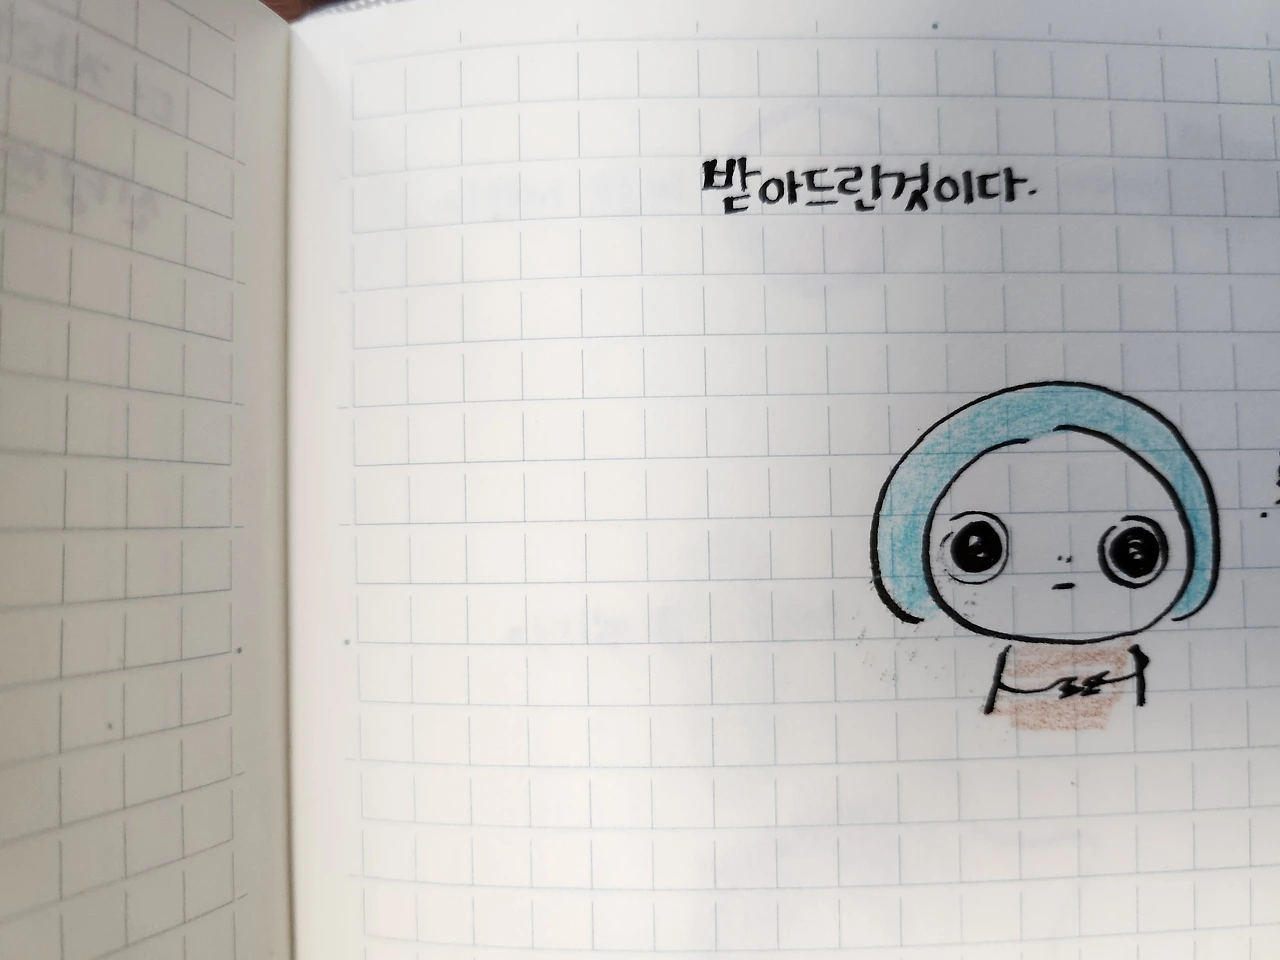 받아드린것이다.